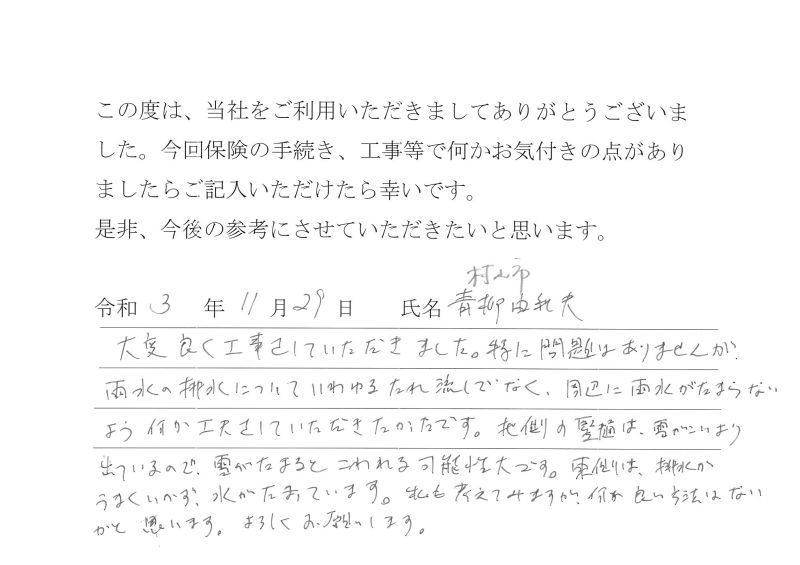 この度は、当社をご利用いただきましてありがとうございま
した。今回保険の手続き、工事等で何かお気付きの点があり
ましたらご記入いただけたら幸いです。
是非、今後の参考にさせていただきたいと思います。
村山市
令和 3 年 11 月 29 日 氏名 青柳由和夫
大変良く工事させていただきました。特に問題はありませんが、
雨水の排水についていわゆるたれ流しでなく、周辺に雨水がたまらない
よう何か工夫させていただきたかったです。北側の竪樋は、雪がこいより
出ているので、雪がたまるとこわれる可能性大です。東側は、排水が
うまくいかず、水がたまっています。私も考えてみますが、何か良い方法はない
かと思います。よろしくお願いします。